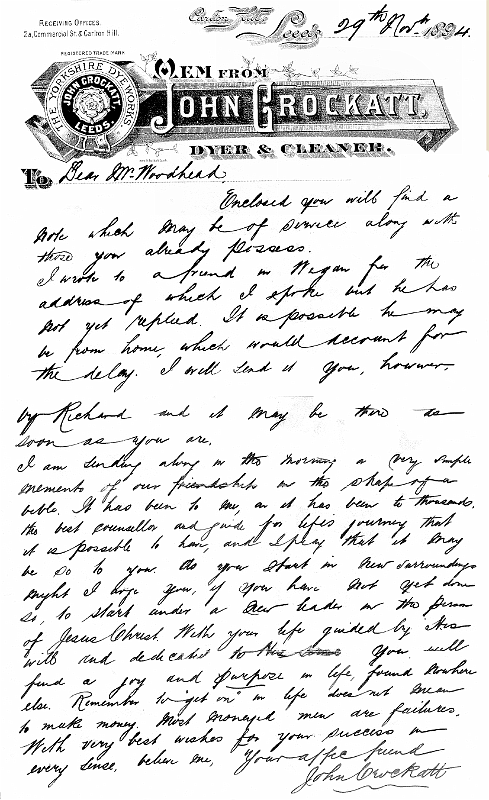 RECEIVING OFFICES.
2a, Commercial St. & Carlton Hill.
Carlton Hill,
Leeds 29th Novr. 1894.
REGISTERED TRADE MARK
THE YORKSHIRE DYE WORKS
JOHN CROCKATT.
LEEDS.
MEM FROM
JOHN CROCKATT,
DYER & CLEANER.
To Dear Mr. Woodhead,
Enclosed you will find a
note which may be of service along with
those you already possess.
I wrote to a friend in Wigan for the
address of which I spoke but he has
not yet replied. It is possible he may
be from home, which would account for
the delay. I will send it you, however,
by Richard and it may be there as
soon as you are.
I am sending along in the morning a very simple
memento of our friendship in the shape of a
bible. It has been to me, as it has been to thousands,
the best counsellor and guide for life's journey that
it is possible to have, and I pray that it may
be so to you. As you start in new surroundings
might I urge you, if you have not yet done
so, to start under a new leader in the person
of Jesus Christ. With your life guided by His
will and dedicated to His you will
find a joy and purpose in life, found nowhere
else. Remember to "get on" in life does not mean
to make money. Most moneyed men are failures.
With very best wishes for your success in
every sense, believe me, Your affec friend
John Crockatt